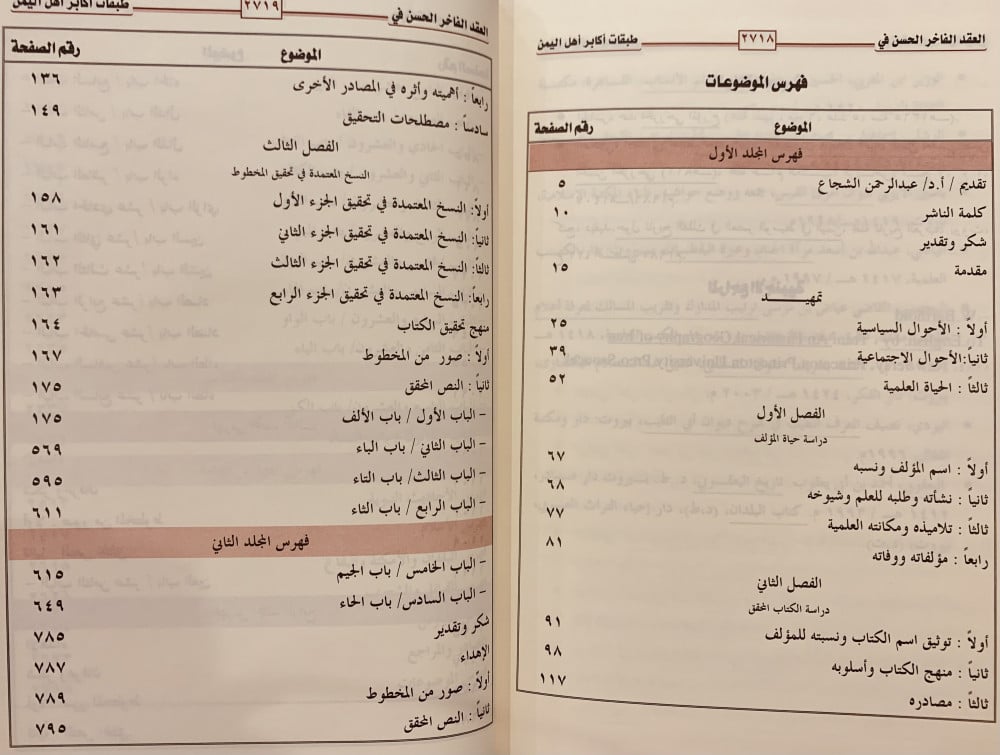 العقد الفاخر الحسن في ٢٧١٨ طبقات أكابر أهل اليمن
فهرس الموضوعات
الموضوع رقم الصفحة
فهرس المجلد الأول
تقديم / أ.د/ عبدالرحمن الشجاع ٥
كلمة الناشر ١٠
شكر وتقدير
مقدمة ١٥
تمهيــد
أولاً : الأحوال السياسية ٢٥
ثانياً:الأحوال الاجتماعية ٣٩
ثالثاً : الحياة العلمية ٥٢
الفصل الأول
دراسة حياة المؤلف
أولاً : اسم المؤلف ونسبه ٦٧
ثانياً : نشأته وطلبه للعلم وشيوخه ٦٨
ثالثاً : تلاميذه ومكانته العلمية ٧٧
رابعاً : مؤلفاته ووفاته ٨١
الفصل الثاني
دراسة الكتاب المحقق
أولاً : توثيق اسم الكتاب ونسبته للمؤلف ٩١
ثانياً : منهج الكتاب وأسلوبه ٩٨
ثالثاً : مصادره ١١٧
العقد الفاخر الحسن في ٢٧١٩ طبقات أكابر أهل اليمن
الموضوع رقم الصفحة
رابعاً : أهميته وأثره في المصادر الأخرى ١٣٦
سادساً : مصطلحات التحقيق ١٤٩
الفصل الثالث
النسخ المعتمدة في تحقيق المخطوط
أولاً: النسخ المعتمدة في تحقيق الجزء الأول ١٥٨
ثانياً: النسخ المعتمدة في تحقيق الجزء الثاني ١٦١
ثالثاً: النسخ المعتمدة في تحقيق الجزء الثالث ١٦٢
رابعاً: النسخ المعتمدة في تحقيق الجزء الرابع ١٦٣
منهج تحقيق الكتاب ١٦٤
أولاً : صور من المخطوط ١٦٧
ثانياً : النص المحقق ١٧٥
- الباب الأول / باب الألف ١٧٥
- الباب الثاني / باب الباء ٥٦٩
- الباب الثالث/ باب التاء ٥٩٥
- الباب الرابع / باب الثاء ٦١١
فهرس المجلد الثاني
- الباب الخامس / باب الجيم ٦١٥
- الباب السادس/ باب الحاء ٦٤٩
شكر وتقدير ٧٨٥
الإهداء ٧٨٧
أولاً : صور من المخطوط ٧٨٩
ثانياً : النص المحقق ٧٩٥